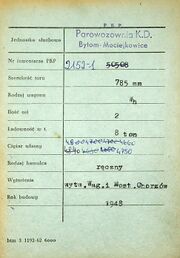 P.B.P.
Jednostka służbowa Parowozownia K.D.
Bytom-Maciejkowice
Nr inwentarza PBP 2153-1
Szerokość toru 785 mm
Rodzaj wagonu Wh
Ilość osi 2
Ładowność w t. 8 ton
Ciężar własny 4750
Rodzaj hamulca ręczny
Wytwórnia Wyt. Wag. i Most. Chorzów
Rok budowy 1948